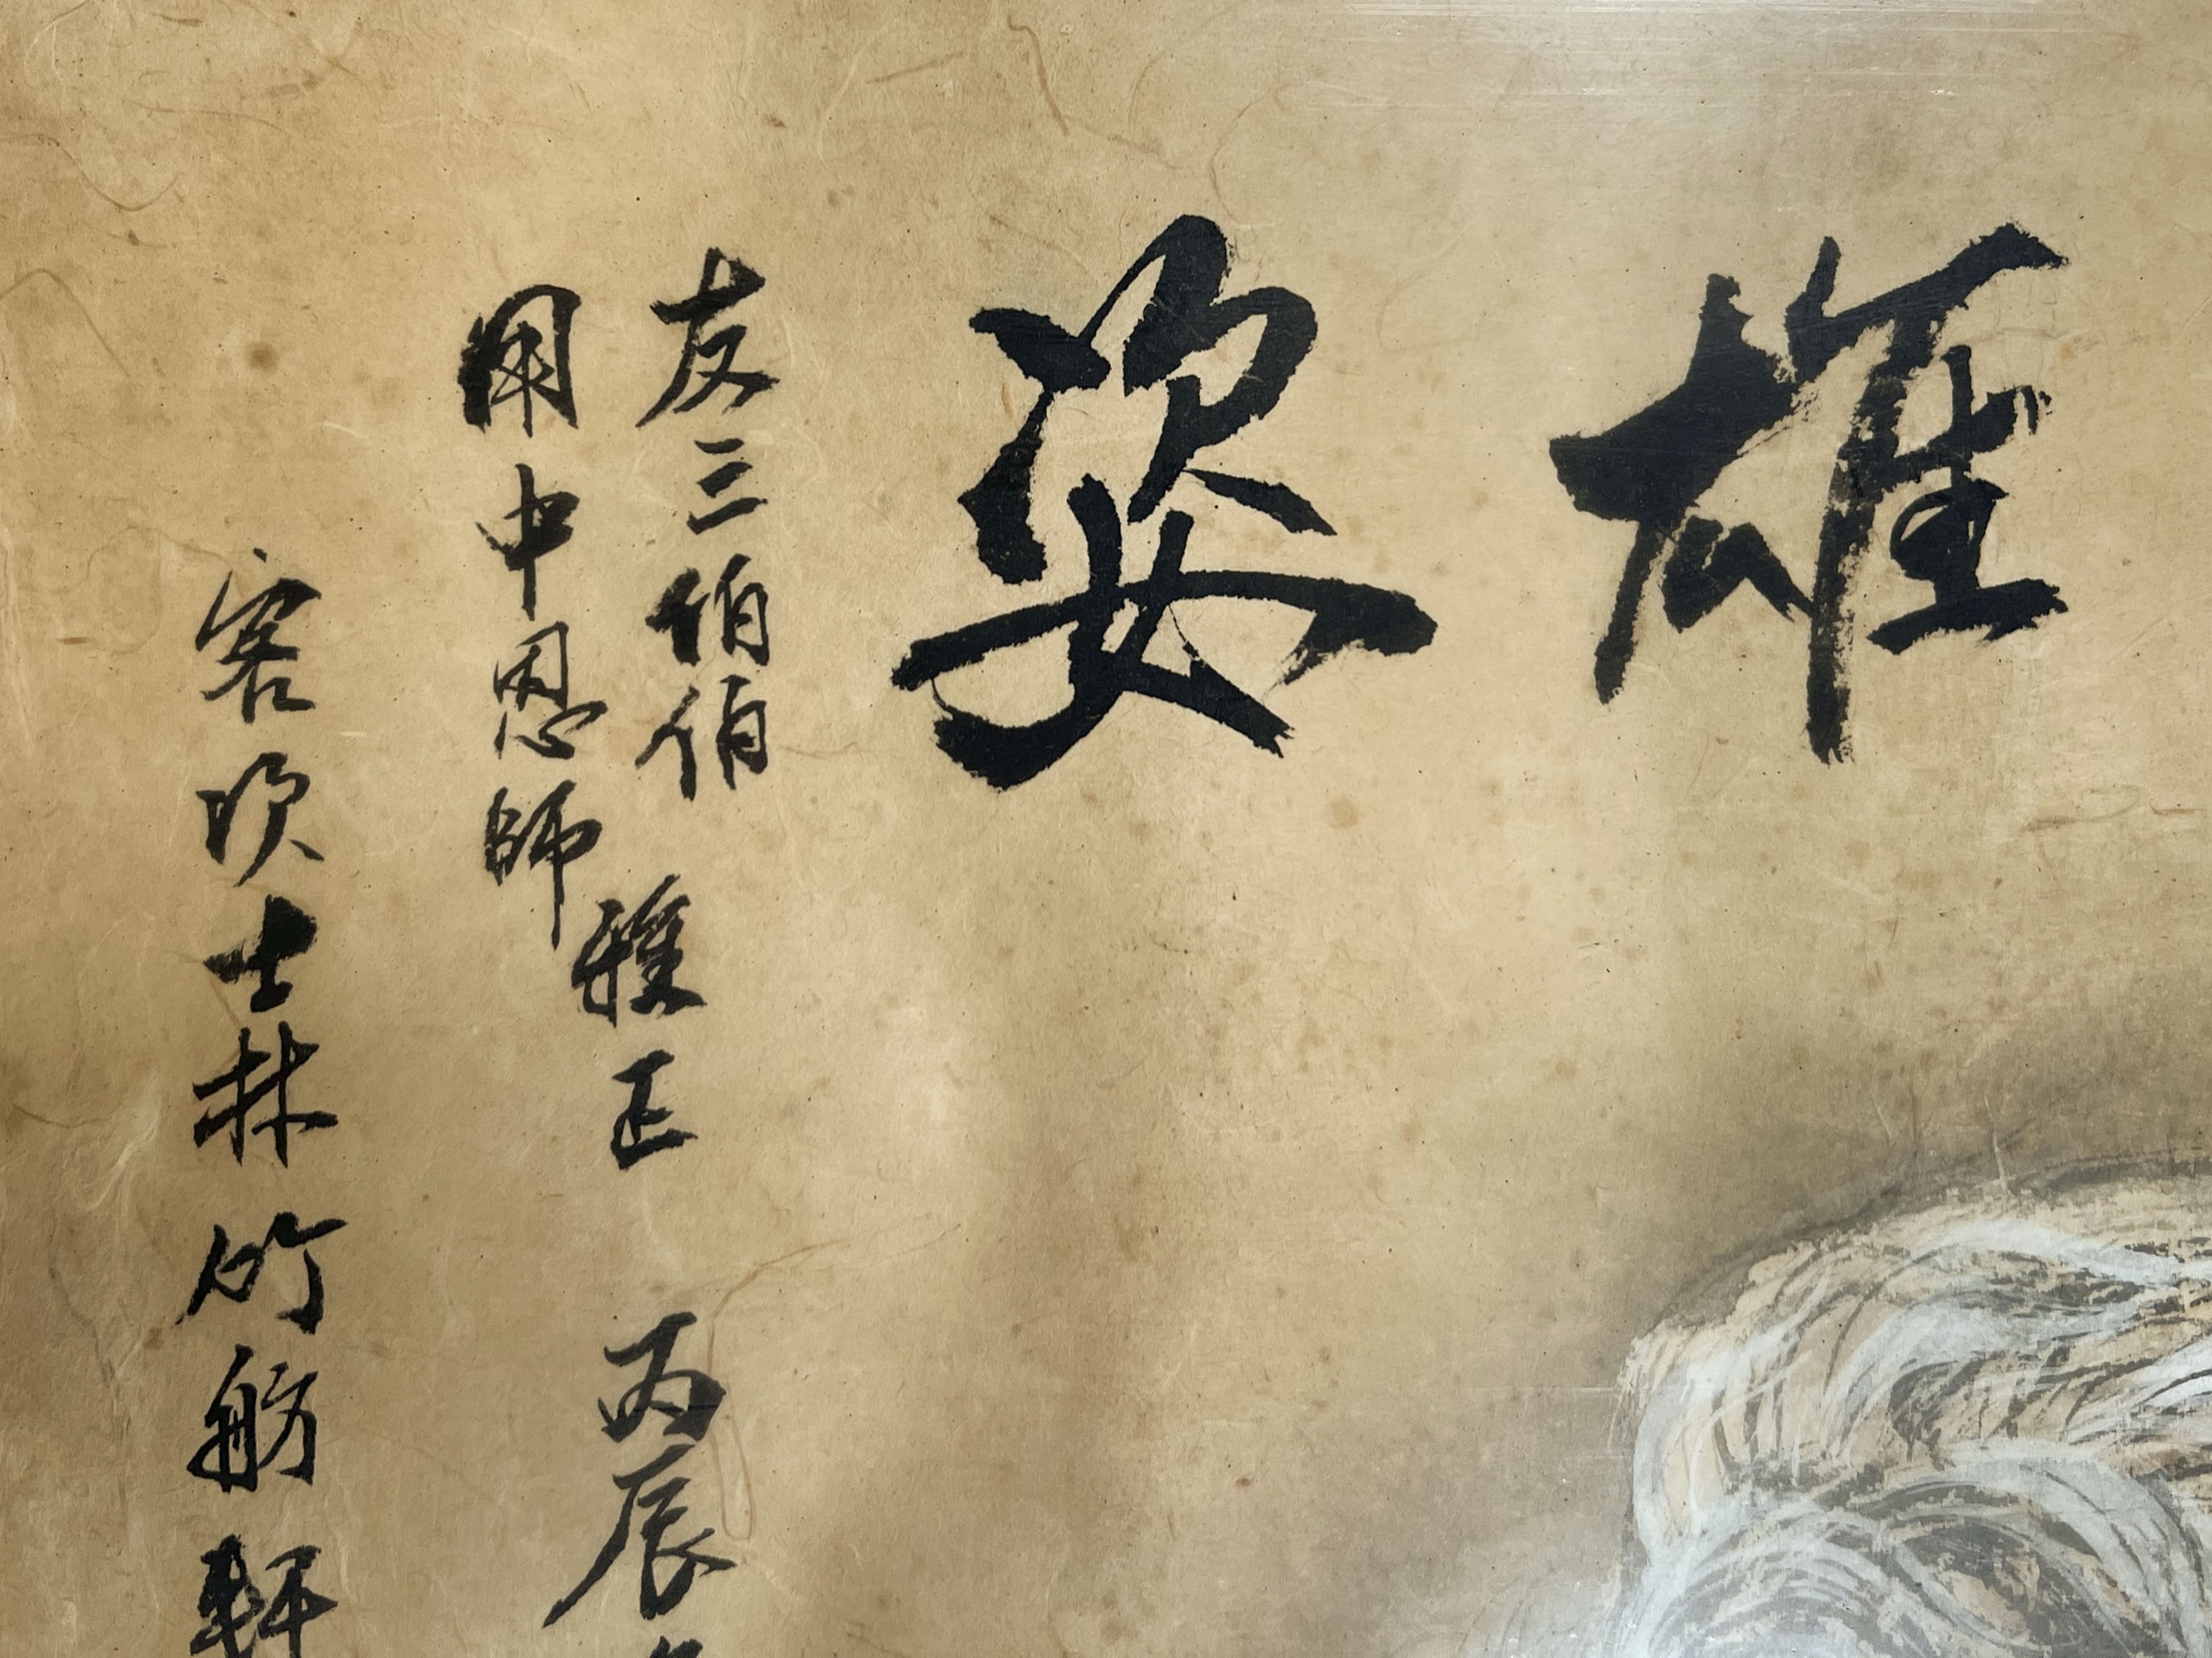 雄姿
友三伯伯
用中恩師
雅正
丙辰
客次士林竹舫軒